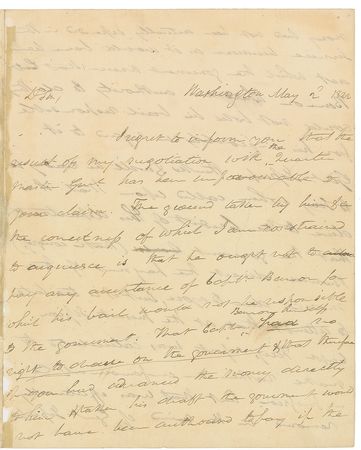 Washington May 2d 1822
Dr Sir,
I regret to inform you that the
result of my negotiation with the Quarter
Master Genl has been unfavourable to
your claim. The ground taken by him & in
the correctness of which I am constrained
to acquiesce, is that he ought not to
pay any acceptance of Captn Benson for
which his bail would not be responsible
to the government. That Captn Benson himself had no
right to draw on the government & that therefore
if you had advanced the money directly
to him & taken his draft the government would
not have been authorized to pay it the